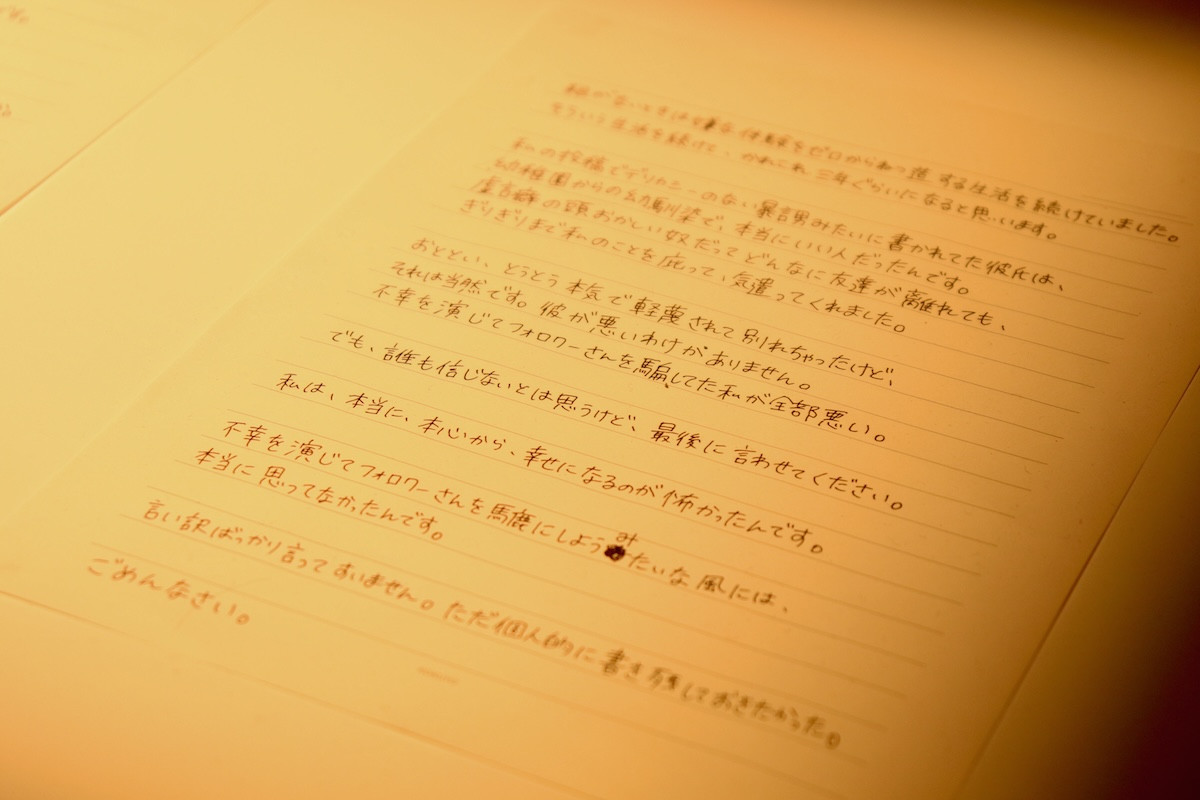 な体験をゼロからねつ造する生活を続けていました。
そういう生活を続けて、かれこれ三年ぐらいになると思います。
私の投稿でデリカシーのない暴言男みたいに書かれてた彼氏は、
幼稚園からの幼馴染で、本当にいい人だったんです。
虚言癖の頭おかしい奴だってどんなに友達が離れても、
ぎりぎりまで私のことを庇って、気遣ってくれました。
おととい、とうとう本気で軽蔑されて別れちゃったけど、
それは当然です。彼が悪いわけがありません。
不幸を演じてフォロワーさんを騙してた私が全部悪い。
でも、誰も信じないとは思うけど、最後に言わせてください。
私は、本当に、本心から、幸せになるのが怖かったんです。
不幸を演じてフォロワーさんを馬鹿にしようみたいな風には、
本当に思ってなかったんです。
言い訳ばっかり言ってすいません。ただ個人的に書き残しておきたかった。
ごめんなさい。